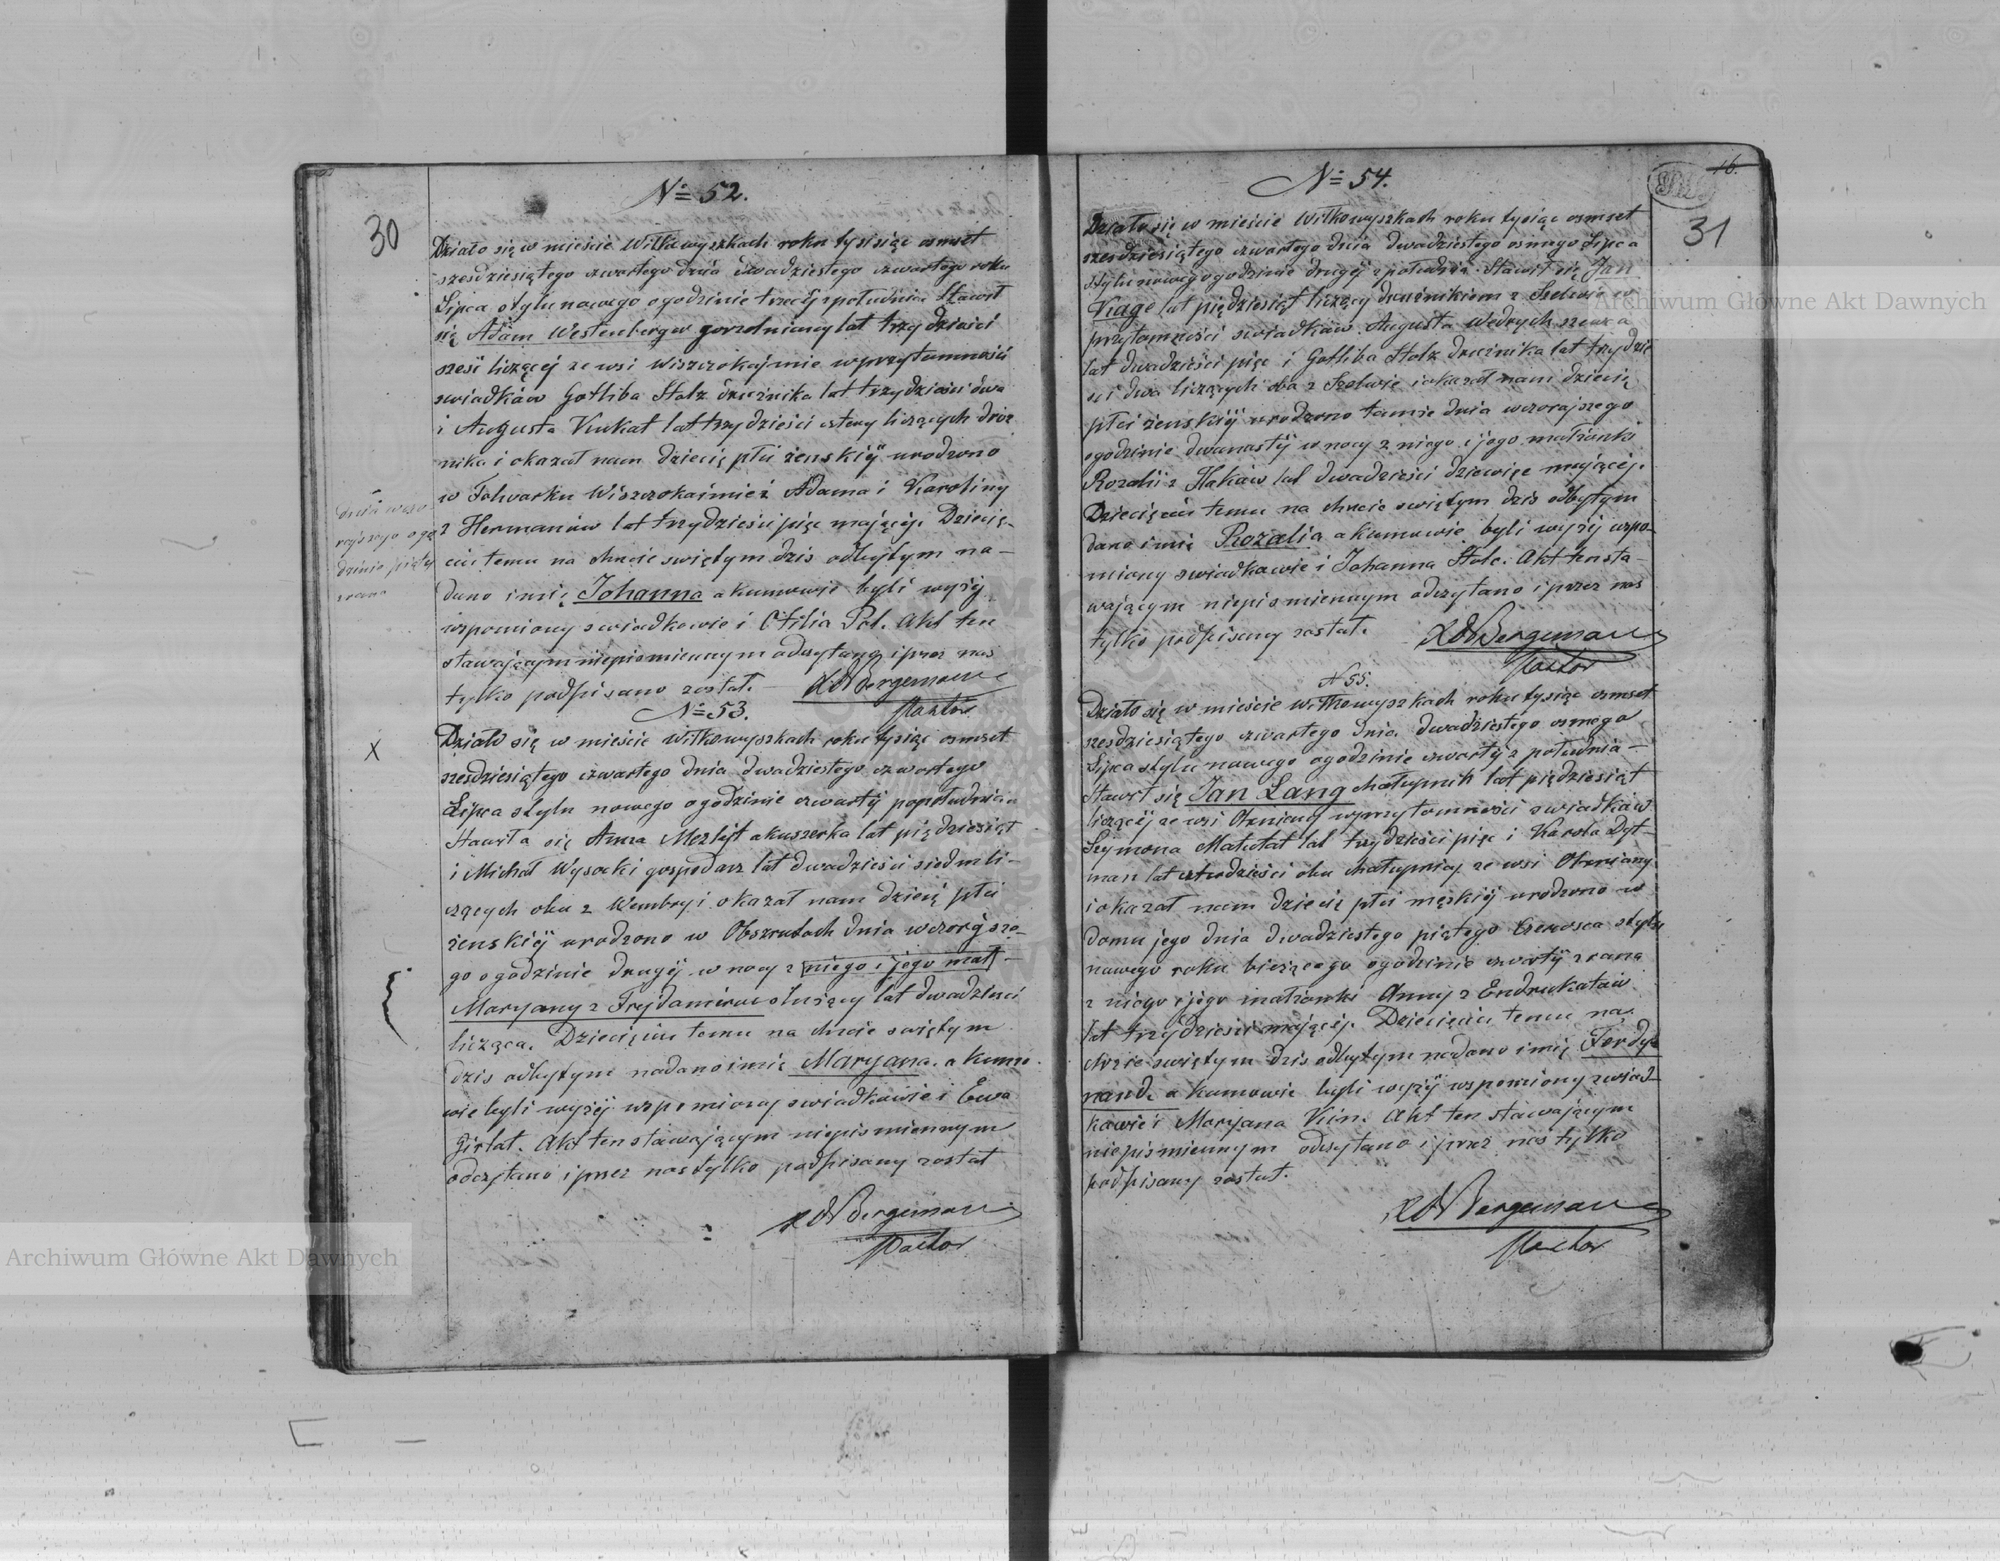 30
№ 52.
Działo się w mieście Wiłkowyszkach roku tysisiąc osmset
szesdziesiątego czwartego dnia dwadziestego czwartego roku
Lipca stylu nowego o godzinie trzecij z południa. Stawił
się Adam Westenberger gorzelniany lat trzydzieści
szesć liczącej ze wsi Wiszczokajmie w przytomności
swiadków Gotliba Stolz lat trzydzieści dwa
i Augusta Kukat lat trzydzieści cztery liczących dróż
nika i okazał nam dziecię płci żenskiij urodzono
w Folwarku Wiszczokajmie z Adama i Karoliny
z Hermanów lat trzydzieści pięc mającej. Dziecię-
ciu temu na chrcie swiętym dzis odbytym na-
dano imię Johanna a kumowie byli wyżij
wspomiony swiadkowie i Otilia Pol. Akt ten
stawającym niepismiennym odczytano i przez nas
tylko podpisano został.
Bergemann
Pastor
dnia wczo
rajszego ogo
dzinie piąty
z rana
№ 53.
X
Działo się w mieście Wiłkowyszkach roku tysiąc osmset
szesdziesiątego czwartego dnia dwadziestego czwartego
Lipca stylu nowego o godzinie czwartij popołudniu
Stawiła się Anna Mezlejt akuszerka lat pięcdziesiąt
i Michał Wysocki gospodarz lat dwadzieści siedm li-
czących obu z Wembry i okazał nam dziecię płci
żenskiij urodzono w Obszrutach dnia wczorajsze-
go o godzinie drugij w nocy z niego i jego mał-
Maryany z Frydamirow służący lat dwadzieści
licząca. Dziecięciu temu na chrcie swiętym
dzis odbytym nadano imię Maryana. a kumo
wie byli wyżij wspomiony swiadkowie i Ewa
Girłat. Akt ten stawającym niepismiennym
odczytano i przez nas tylko podpisany został
Bergemann
Pastor
16.
31
№ 54.
Działo się w mieście Wiłkowyszkach roku tysiąc osmset
szesdziesiątego czwartego dnia dwadziestego osmego Lipca
stylu nowego o godzinie drugij z południa. Stawił się Jan
Krage lat pięcdziesiąt liczący z Szelwie w
przytomności swiadków Augusta Wedrych szewca
lat dwadzieści pięc i Gotliba Stolz lat trzydzie
sci dwa liczących oba z Szelwie i okazał nam dziecię
płci żenskiij urodzono tamże dnia wczorajszego
ogodzinie dwunastij w nocy z niego i jego małżonki
Rozalii z Hakiów lat dwadzieści dziewięc mającej.
Dziecięciu temu na chrcie swiętym dzis odbytym
dano imię Rozalia a kumowie byli wyżij wspo-
miony swiadkowie i Johanna Stolc. Akt ten sta-
wającym niepismiennym odczytano i przez nas
tylko podpisany został.
Bergemann
Pastor
№ 55.
Działo się w mieście Wiłkowyszkach roku tysiąc osmset
szesdziesiątego czwartego dnia dwadziestego osmego
Lipca stylu nowego ogodzinie czwartij z południa-
Stawił się Jan Lang chałupnik lat pięcdziesiąt
liczącij ze wsi w przytomności swiadków
Szymona Matutat lat trzydzieści pięc i Karola Dyt-
man lat obu chałupnicy ze wsi
i okazał nam dziecię płci męskiij urodzono w
domu jego dnia dwadziestego piątego Czerwca stylu
nowego roku bieżącego ogodzinie czwartij z rana
z niego i jego małżonki Anny z Endrukatow
lat trzydzieści mającej. Dziecięciu temu na
chrcie swiętym dzis odbytym nadano imię Ferdy-
nand. a kumowie byli wyżij wspomiony swiad-
kowie i Maryana Kiin. Akt ten stawającym
niepismiennym odczytano i przez nas tylko
podpisany został.
Bergemann
Pastor
Archiwum Główne Akt Dawnych
Archiwum Główne Akt Dawnych